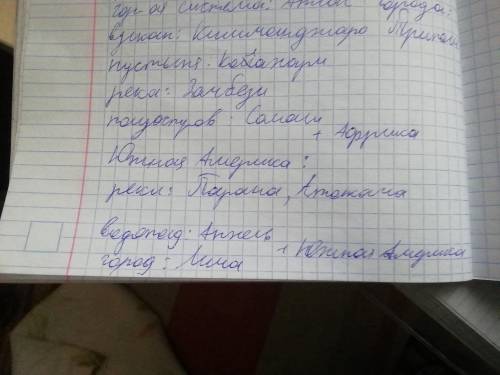 горная система: Атлас города:
вулкан: Килиманджаро Триполи
пустыня: Калахари
река: Замбези
полуостров: Сомали
+ Африка
Южная Америка:
реки: Парана, Атакама
водопад: Анхель
город: Лима + Южная Америка